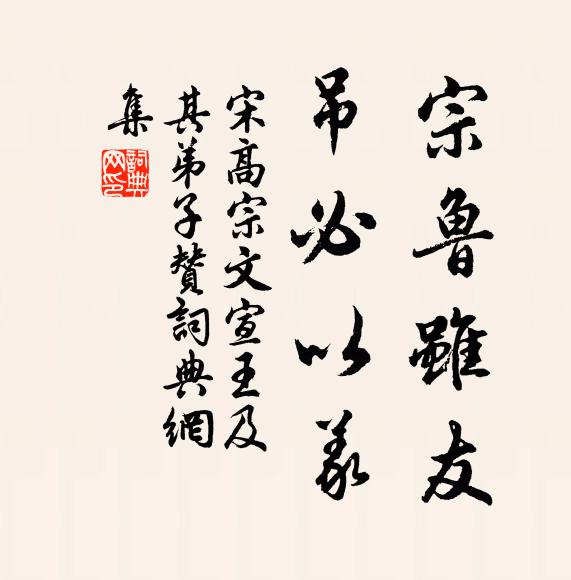 宗魯雖友
吊必以義
宋高宗文宣王及
其弟子贊詞典網
集
詞典
网印